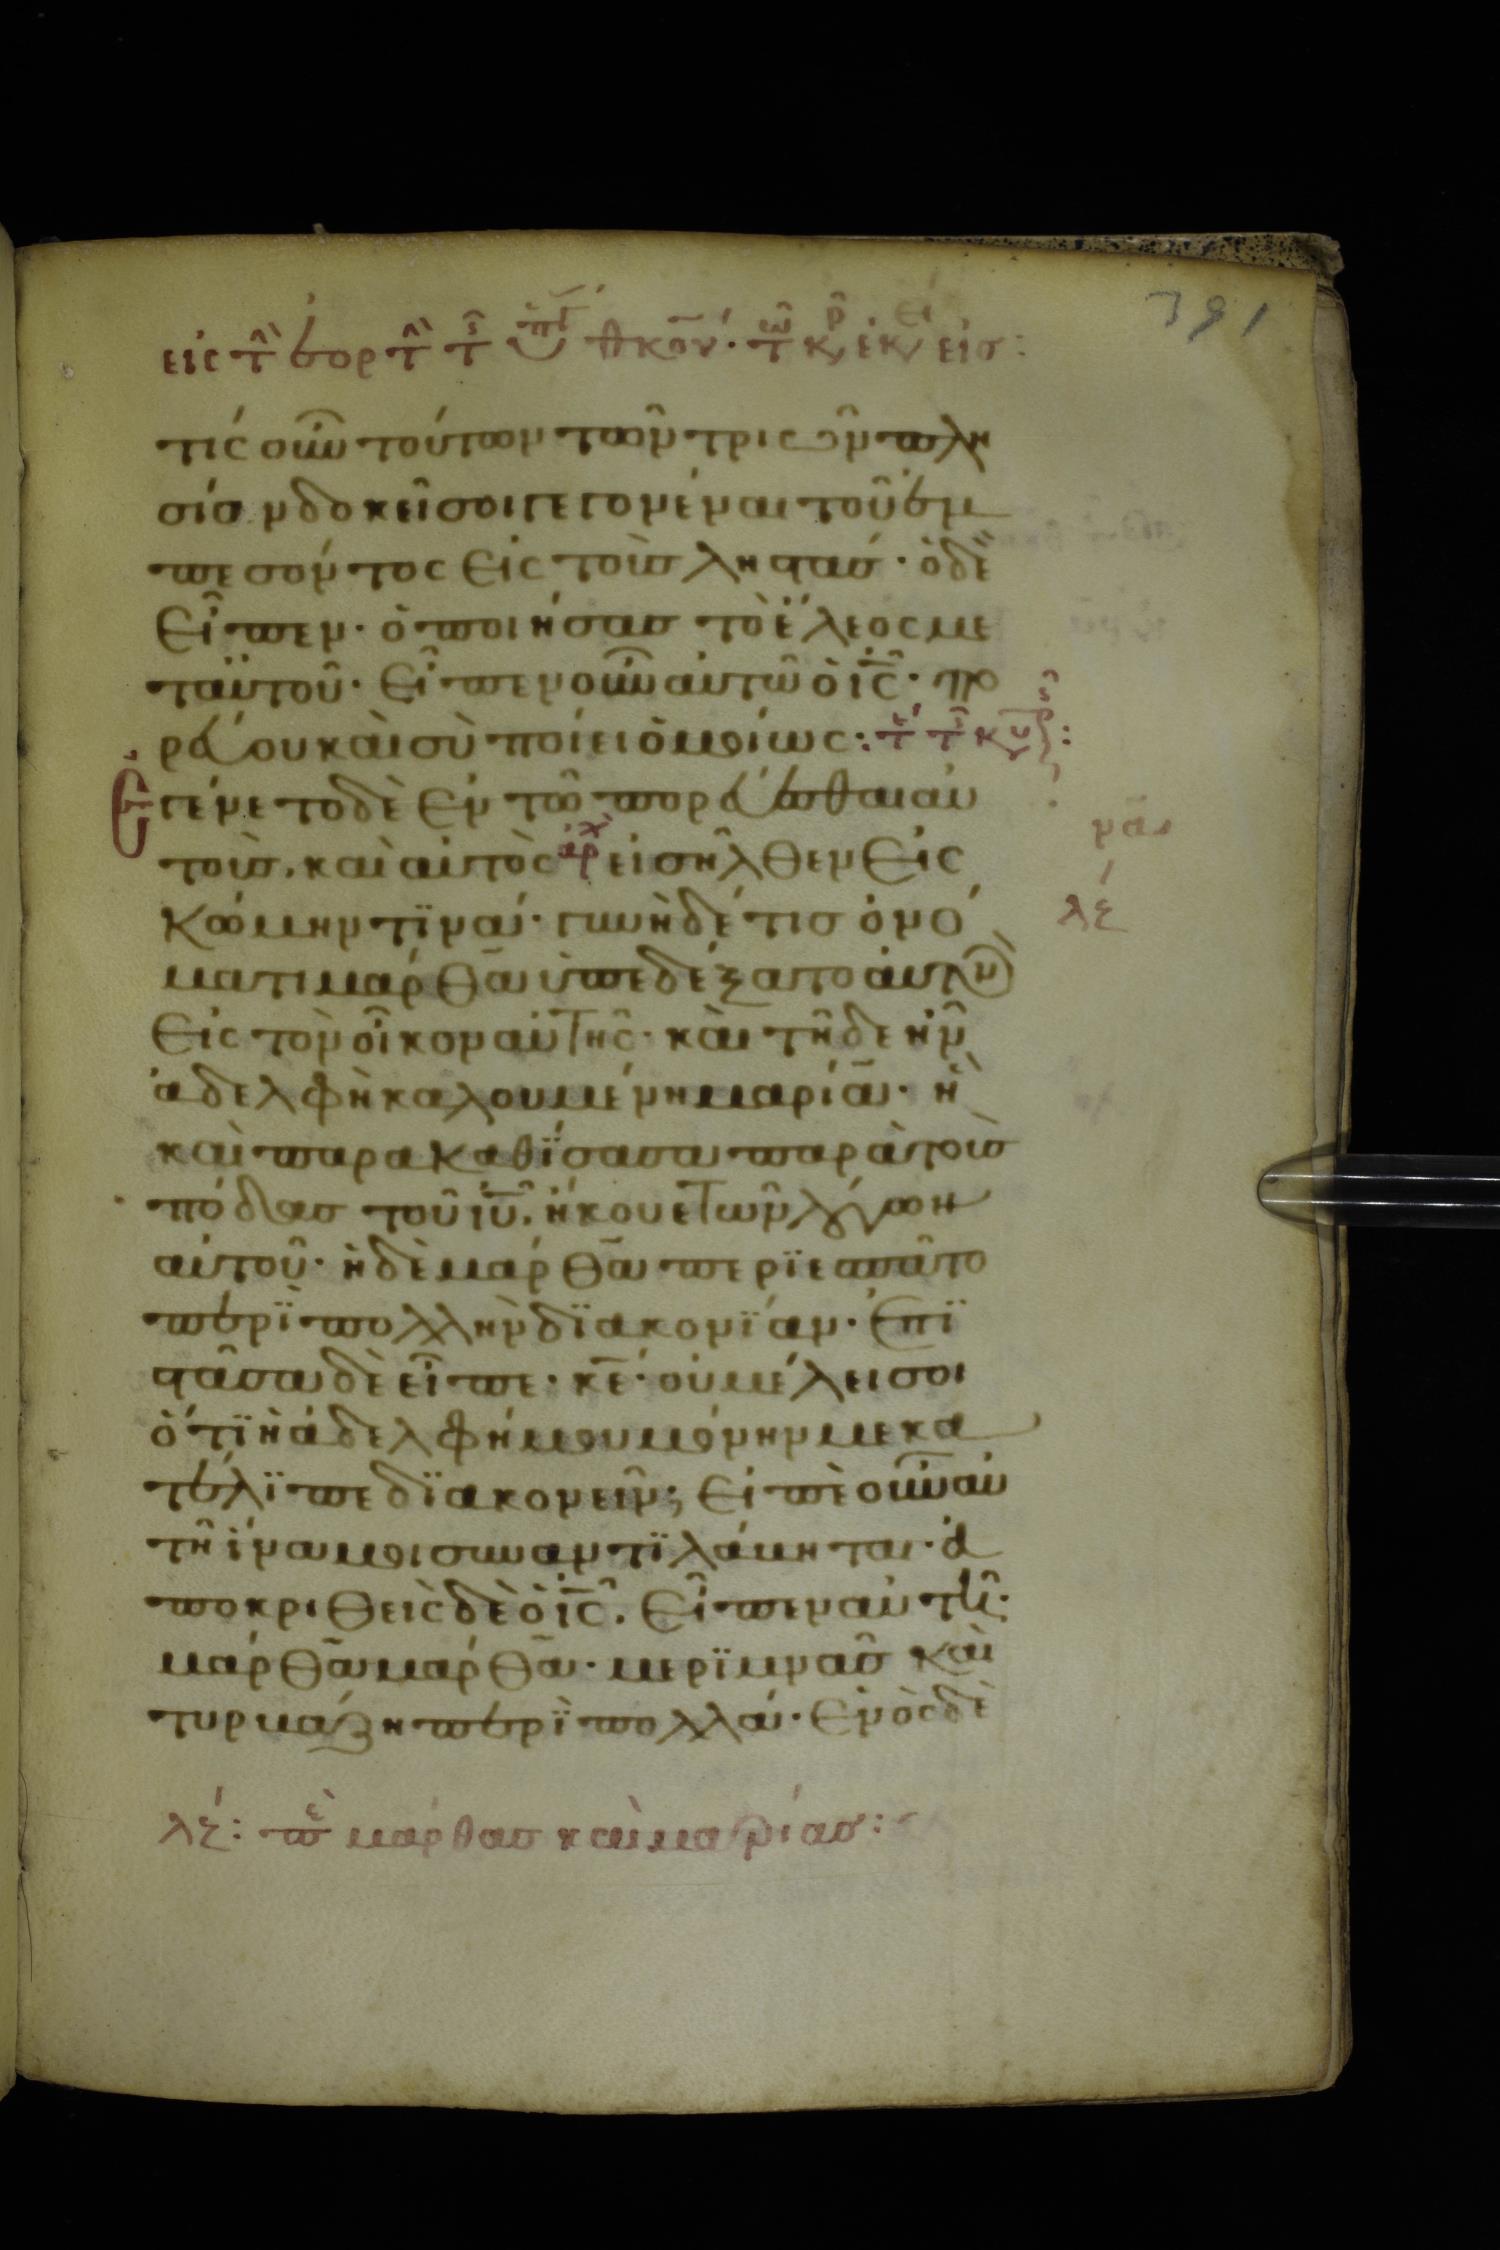 εἰς τ̂ ἑορτ̂ τ̂ ὑπ θκου. τ κ̅ε̅ ἐκ εἰσ:
τίς οὖν τούτων τῶν τριῶν πλη
σίον δοκεῖ σοι γεγονέναι τοῦ ἐμ
πεσόντος εἰς τοὺς ληστάς· ὁ δὲ
εἶπεν· ὁ ποιήσας τὸ ἔλεος με
τ' αὐτοῦ· εἶπεν οὖν αὐτῶ ὁ ι̅ς̅· πο
ρεύου καὶ σὺ ποίει ὁμοίως:
Ἐγένετο δὲ ἐν τῶ πορεύεσθαι αὐ
τοὺς, καὶ αὐτὸς ἀρχ εἰσῆλθεν εἰς
κώμην τϊνά· γυνὴ δέ τις ὀνό
ματι μάρθα ὑπεδέξατο αὐτὸν
εἰς τὸν οἶκον αὐτῆς· καὶ τῆδε ἦν
ἀδελφὴ καλουμένη μαρία· ἣ
καὶ παρακαθΐσασα παρὰ τοὺς
πόδας τοῦ ι̅υ̅, ἤκουε τῶν λόγων
αὐτοῦ· ἡ δὲ μάρθα περϊεσπᾶτο
περϊ πολλὴν δϊακονϊαν· ἐπϊ
στᾶσα δὲ εἶπε· κ̅ε̅· οὐ μέλει σοι
ὅτϊ ἡ ἀδελφή μου μόνην με κα
τέλϊπε δϊακονεῖν; εἰπὲ οὖν αὐ
τῆ ἵνα μοι συναντϊλάβηται· ἀ
ποκριθεὶς δὲ ὁ ι̅ς̅. εἶπεν αὐτῆ·
μάρθα μάρθα· μερϊμνᾶς καὶ
τυρβάζη περϊ πολλά· ἑνὸς δὲ
λζ: π μάρθας καὶ μαρίας: